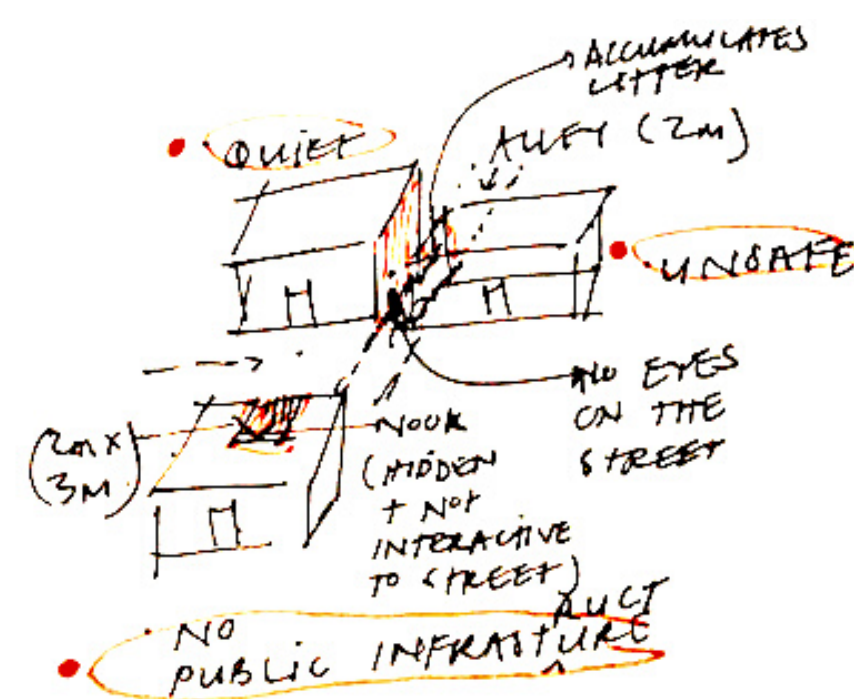 ACCUMULATES
LITTER
QUIET
ALLEY (2M)
UNSAFE
NO EYES
ON THE
STREET
(2M X
3M)
NOOK
(HIDDEN
+ NOT
INTERACTIVE
TO STREET)
NO
PUBLIC INFRASTRUCTURE